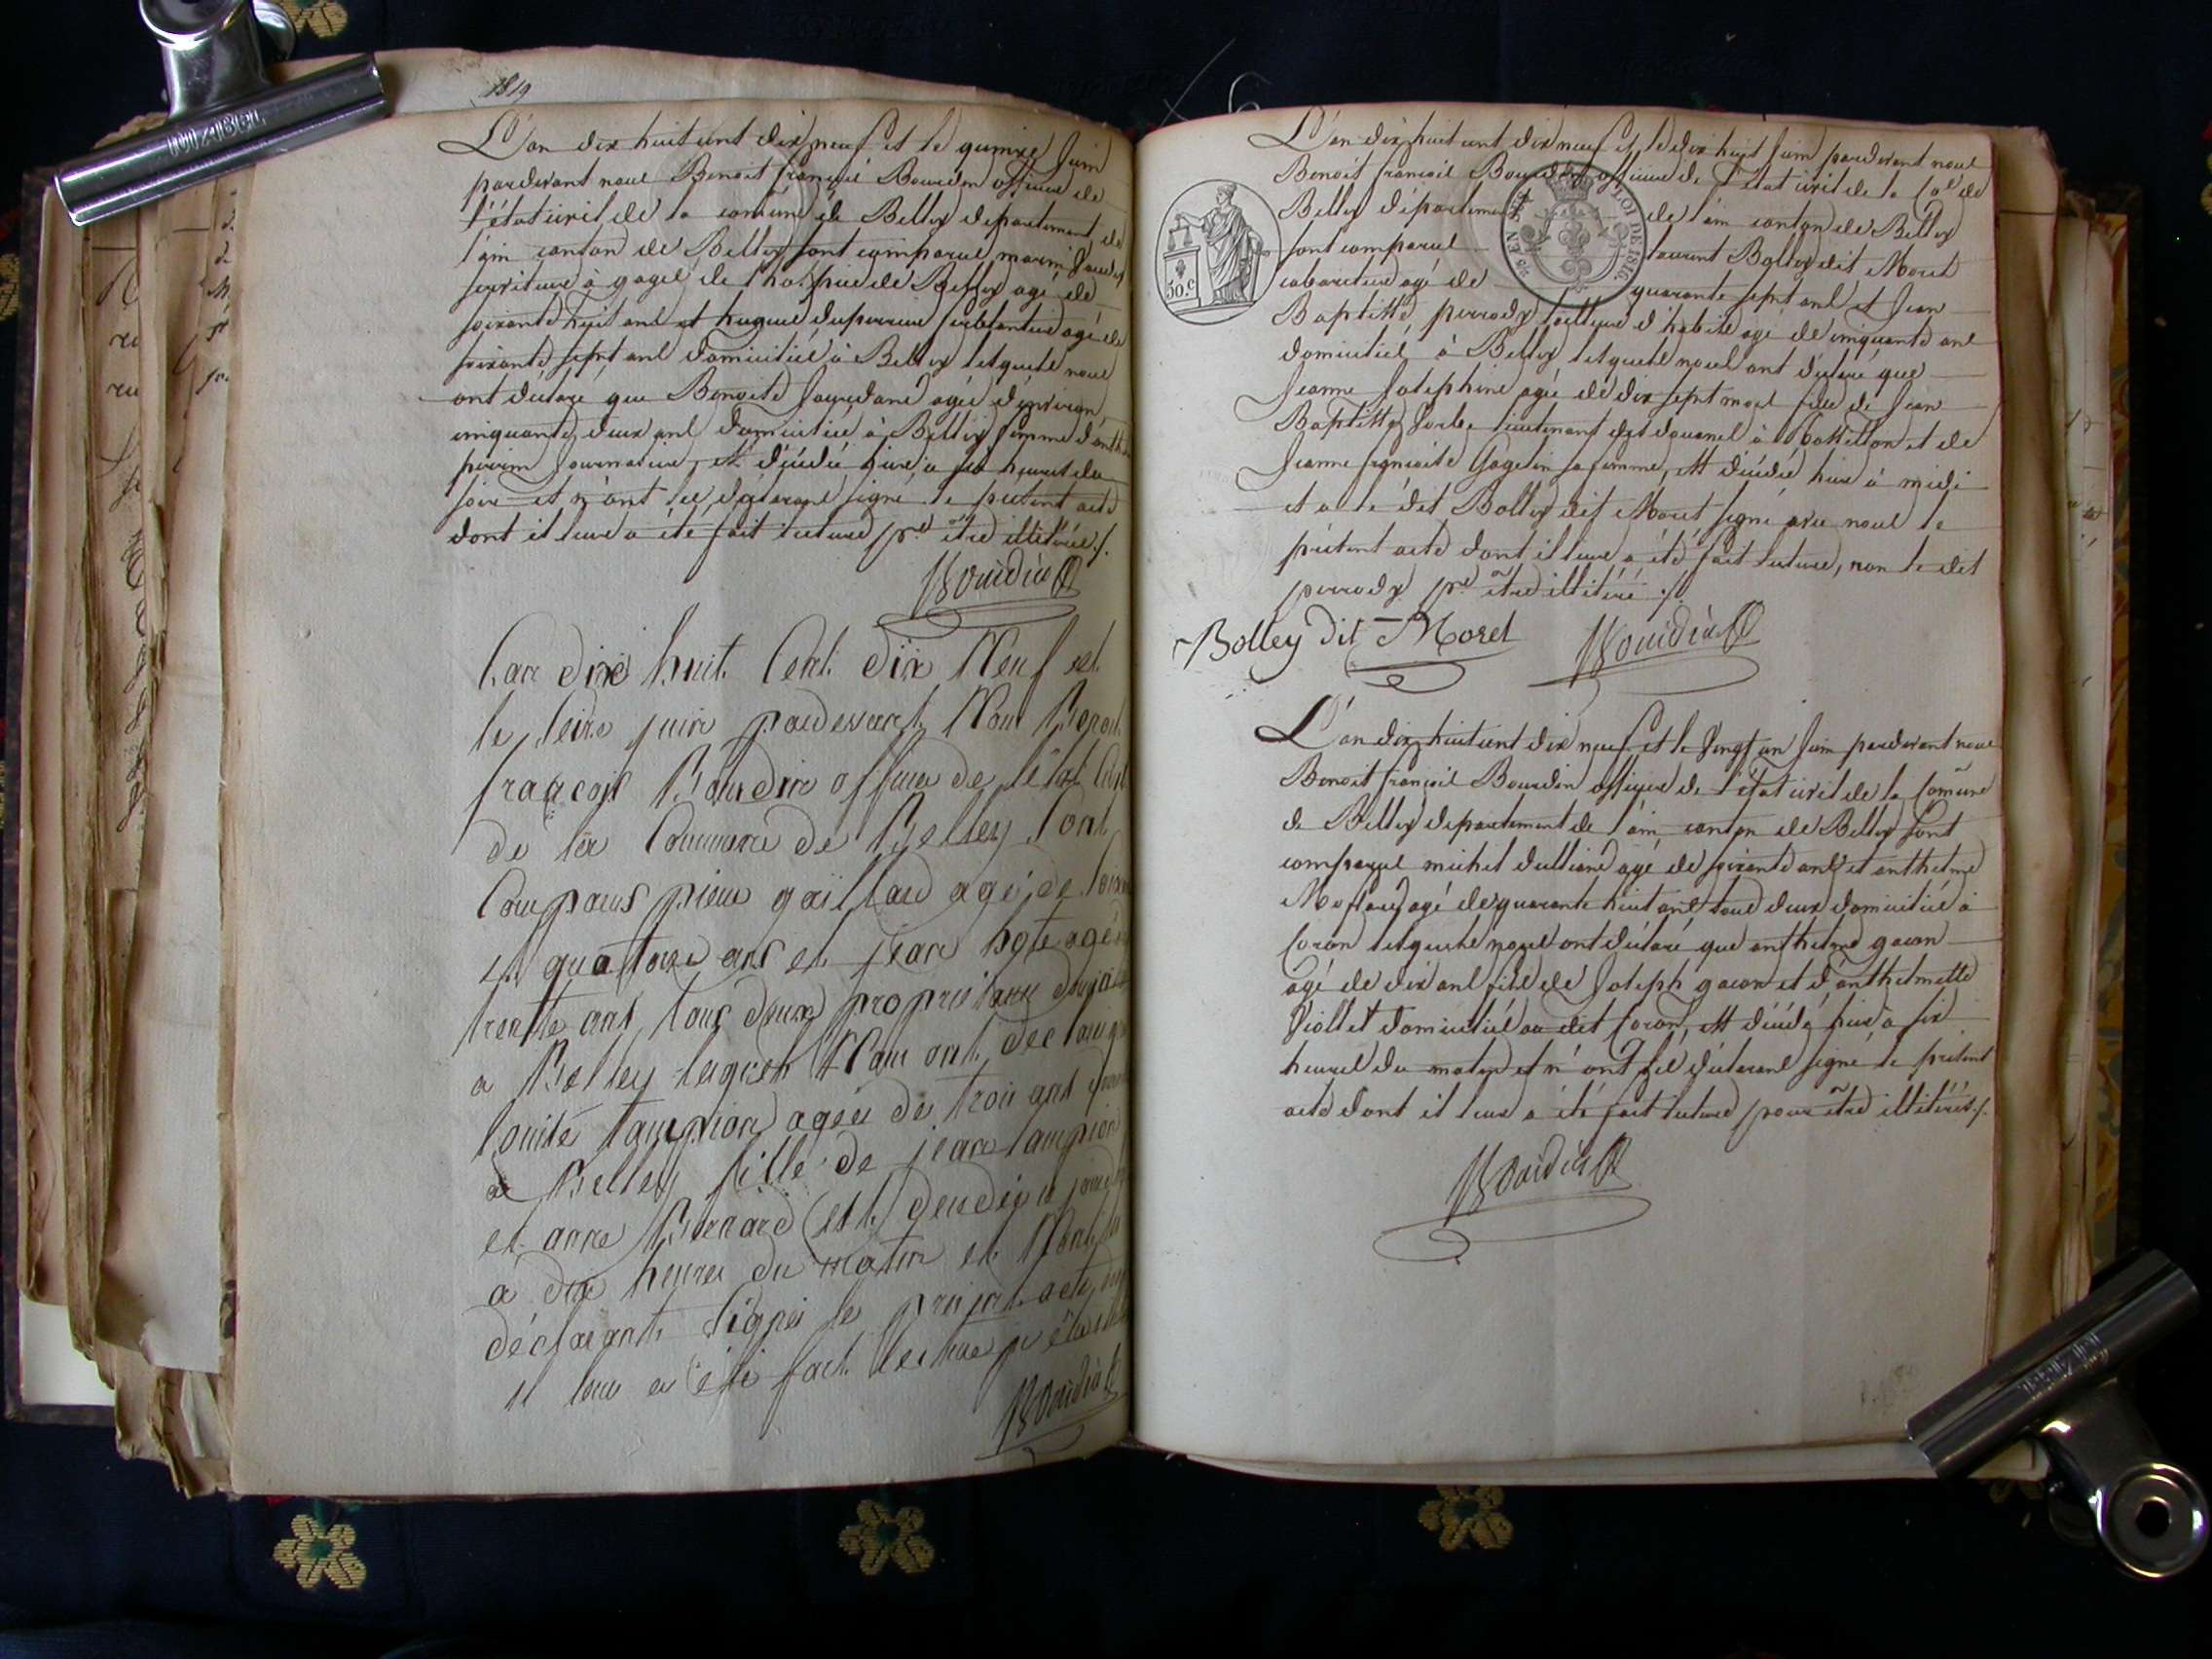 1819
L'an dix huit cent dix neuf et le quinze Juin
pardevant nous Benoit françois Bourdin officier de
l'état civil de la comune de Belley département de
l'ain canton de Belley sont comparus marin
serviteur à gages de l'hospice de Belley agé de
soixante huit ans et hugues duperrier ferblantier agé de
soixante sept ans domiciliés à Belley lesquels nous
ont déclaré que Benoite Jourdane agée d'environ
cinquante deux ans domiciliée à Belley femme d'anth
perrin Journalier, est décédée hier à six heures du
soir et n'ont les déclarans signé le présent acte
dont il leur a été fait lecture pr. être illitérés ./.
Bourdin
L'an dixe huit Cent dix Neuf et
le seize juin pardevant Nous Benoit
françois Bourdin officier de l'état Civil
de la Commune de Belley Sont
Comparus pierre gaillard agé de soixante
et quatorze ans et jean hote agé de
trente ans tous deux propriétaire
a Belley lesquels Nous ont déclaré que
louise tampion agée de trois ans
a Belley fille de jean tampion
et anne Bernard (est) decedée
a dix heures du matin et N'ont les
déclarants Signés le présent acte
il leur a été fait lecture pr être
Bourdin
L'an dix huit cent dix neuf et le dix huit Juin pardevant nous
Benoit françois Bourdin officier de l'état civil de la Cne de
Belley département de l'ain canton de Belley
sont comparus laurent Bolley dit Moret
cabaretier agé de quarante sept ans et Jean
Baptiste perrody tailleur d'habits agé de cinquante ans
domiciliés à Belley lesquels nous ont déclaré que
Jeanne Josephine agée de dix sept mois fille de Jean
Baptiste lieutenant des douanes à et de
Jeanne françoise Gagelin sa femme, est décédée hier à midi
et a le dit Bolley dit Moret signé avec nous le
présent acte dont il leur a été fait lecture, non le dit
perrody pr. être illitéré ./.
Bolley dit Morel Bourdin
50.c
LOI DE 1816.
L'an dix huit cent dix neuf et le vingt un Juin pardevant nous
Benoit françois Bourdin officier de l'état civil de la Comune
de Belley département de l'ain canton de Belley sont
comparus michel dulliand agé de soixante ans et anthelme
agé de quarante huit ans tous deux domiciliés à
Coron lesquels nous ont déclaré que anthelme gacon
agé de dix ans fils de Joseph gacon et d'anthelmette
Viollet domiciliés au dit Coron, est décédé hier à six
heures du matin et n'ont les déclarans signé le présent
acte dont il leur a été fait lecture pour être illitérés ./.
Bourdin